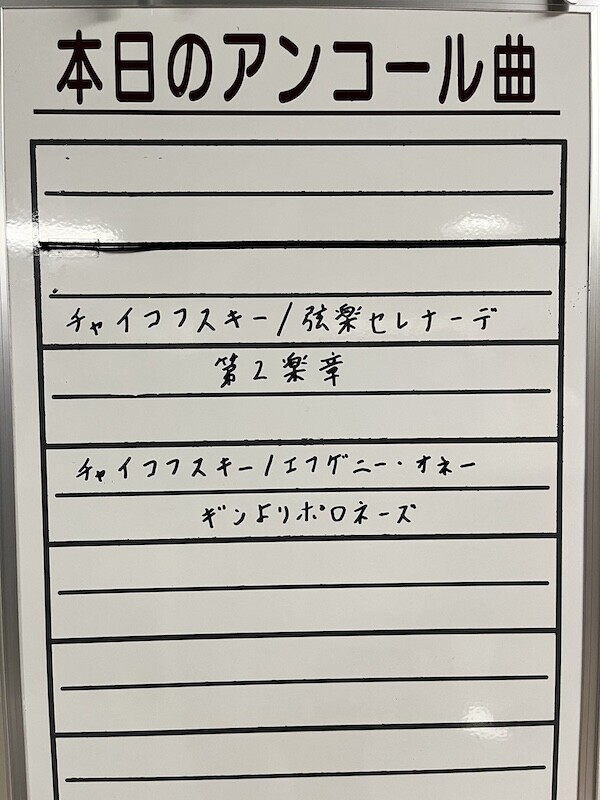 本日のアンコール曲
チャイコフスキー/弦楽セレナーデ
第2楽章
チャイコフスキー/エフゲニー・オネー
ギンよりポロネーズ